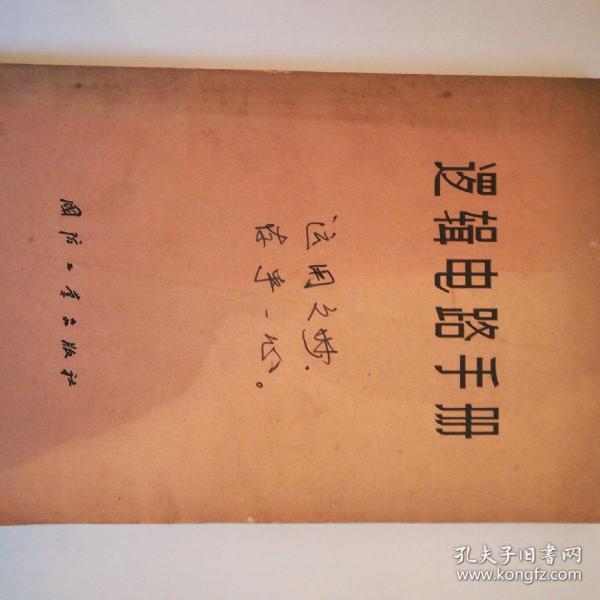 逻辑电路手册
运用之妙,
存乎一心。
国防工业出版社
孔夫子旧书网
www.kongfz.com